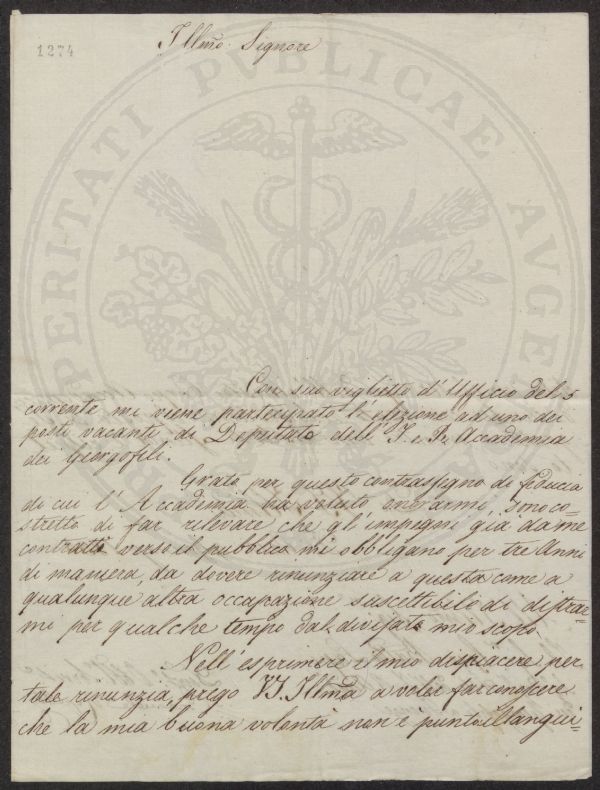 1274
Illmo. Signore
PROSPERITATI PVBLICAE AVGENDAE
Con suo viglietto d'Uffizio del 5
corrente mi viene partecipato l'elezione ad uno dei
posti vacanti di Deputato dell'I. e R. Accademia
dei Georgofili.
Grato per questo contrassegno di fiducia
di cui l'Accademia ha voluto onorarmi, sono co=
stretto di far rilevare che gl'impegni già da me
contratti verso il pubblico mi obbligano per tre Anni
di maniera, da dovere rinunziare a questa come a
qualunque altra occupazione suscettibile di distrar=
mi per qualche tempo dal divisato mio scopo.
Nell'esprimere il mio dispiacere per
tale rinunzia, prego VS. Illma a voler far conoscere
che la mia buona volontà non è punto illangui=